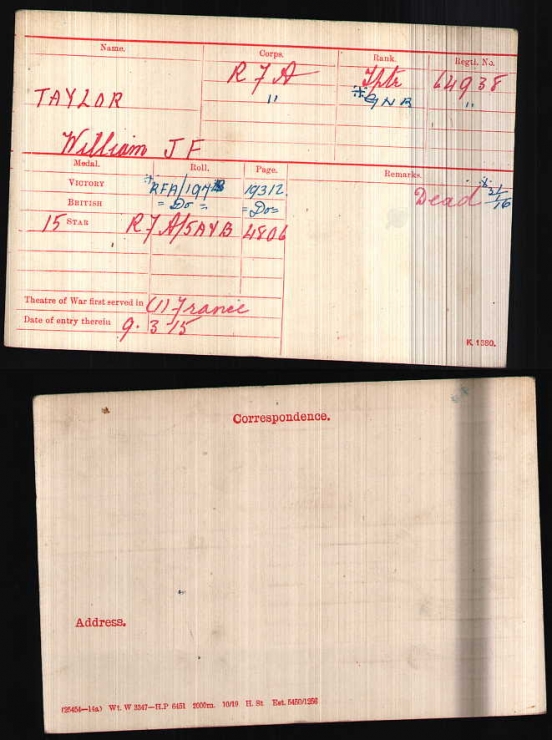 Name. Corps. Rank. Regtl. No.
R F A Tptr 64938
TAYLOR " * GNR "
William J F
Medal. Roll. Page. Remarks.
VICTORY * RFA/194B 19312. Dead
BRITISH = Do = = Do =
15 STAR R F A/5AYB 4806
Theatre of War first served in (1) France
Date of entry therein 9. 3 15
K. 1380.
Correspondence.
Address.
(25454—14a) Wt. W 3347—H.P 6451 2000m. 10/19 H. St Est. 5450/1256